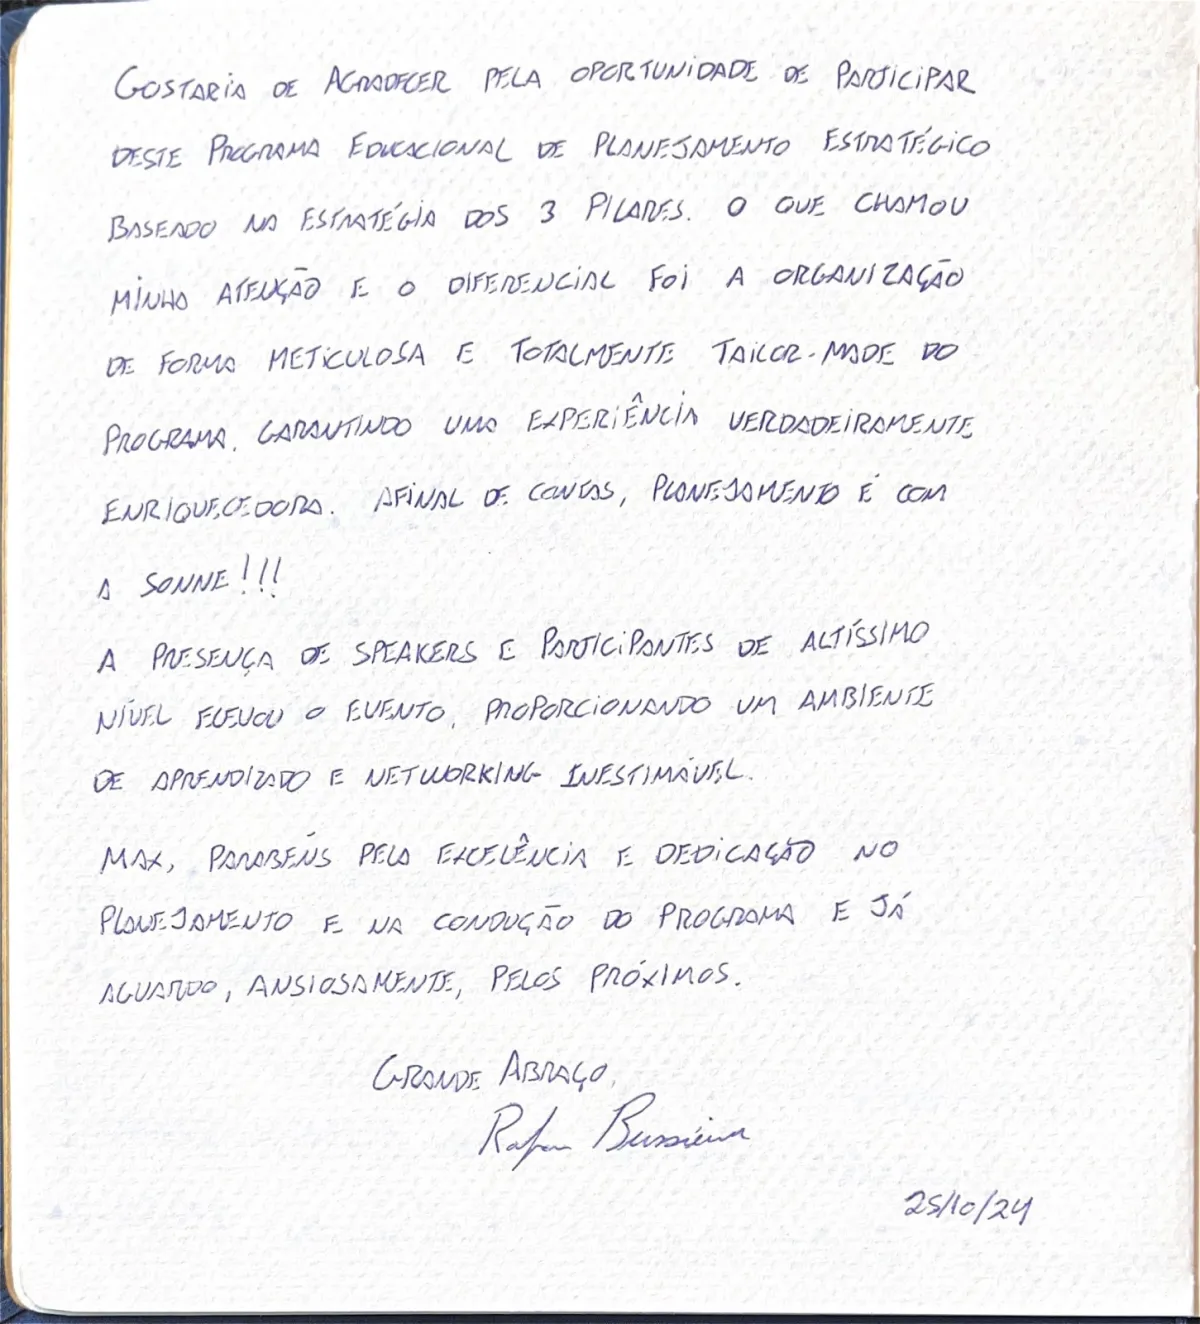 GOSTARIA DE AGRADECER PELA OPORTUNIDADE DE PARTICIPAR
DESTE PROGRAMA EDUCACIONAL DE PLANEJAMENTO ESTRATÉGICO
BASEADO NA ESTRATÉGIA DOS 3 PILARES. O QUE CHAMOU
MINHA ATENÇÃO E O DIFERENCIAL FOI A ORGANIZAÇÃO
DE FORMA METICULOSA E TOTALMENTE TAILOR-MADE DO
PROGRAMA, GARANTINDO UMA EXPERIÊNCIA VERDADEIRAMENTE
ENRIQUECEDORA. AFINAL DE CONTAS, PLANEJAMENTO É COM
A SONNE!!!
A PRESENÇA DE SPEAKERS E PARTICIPANTES DE ALTÍSSIMO
NÍVEL ELEVOU O EVENTO, PROPORCIONANDO UM AMBIENTE
DE APRENDIZADO E NETWORKING INESTIMÁVEL.
MAX, PARABÉNS PELA EXCELÊNCIA E DEDICAÇÃO NO
PLANEJAMENTO E NA CONDUÇÃO DO PROGRAMA E JÁ
AGUARDO, ANSIOSAMENTE, PELOS PRÓXIMOS.
GRANDE ABRAÇO,
25/10/24